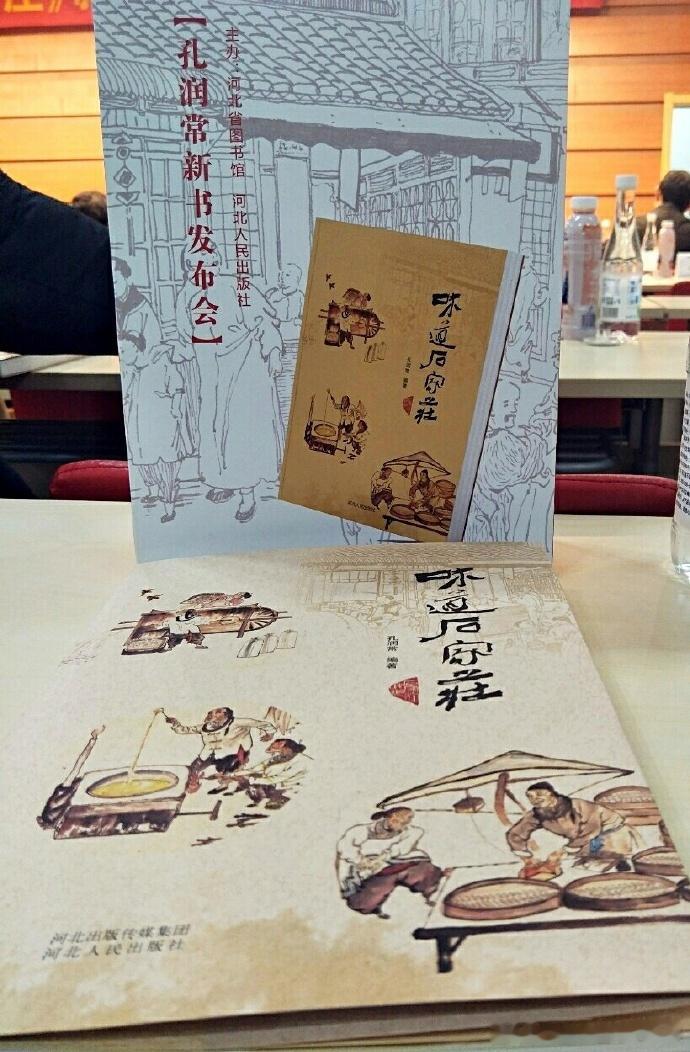 【孔润常新书发布会】
主办：河北省图书馆 河北人民出版社
味道石家庄
孔润常 编著
河北人民出版社
味道石家莊
孔润常 编著
河北出版传媒集团
河北人民出版社